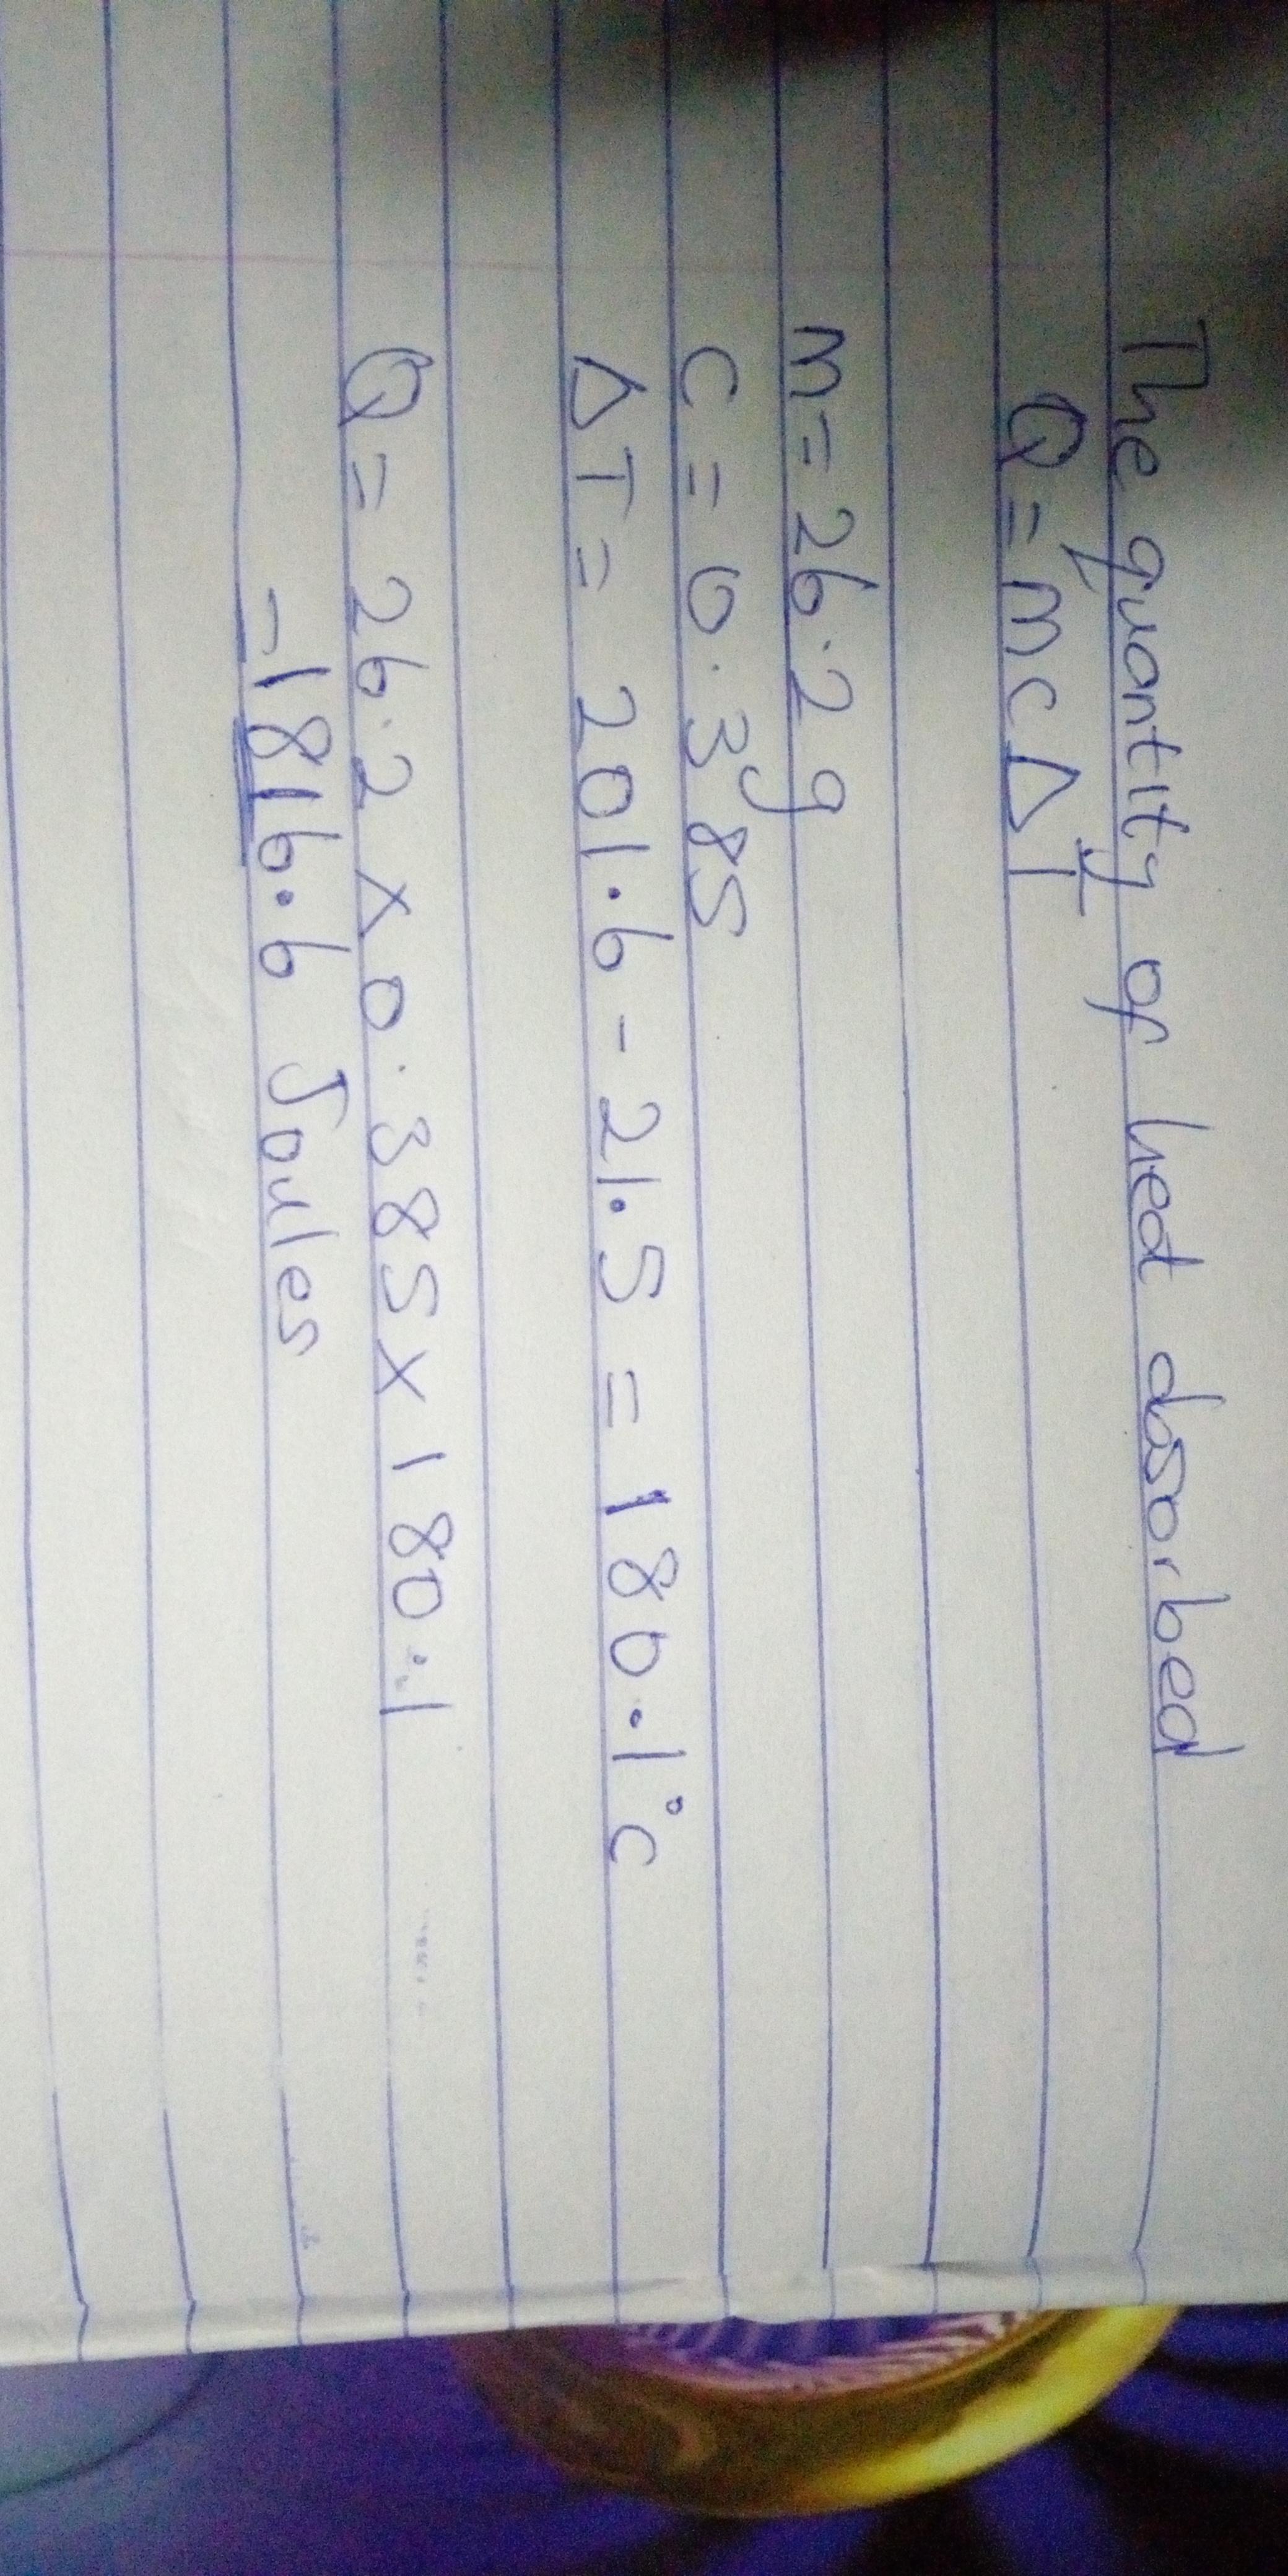 The quantity of heat absorbed
Q = mcΔT
m = 26.2 g
c = 0.385
ΔT = 201.6 - 21.5 = 180.1°c
Q = 26.2 x 0.385 x 180.1
= 1816.6 Joules